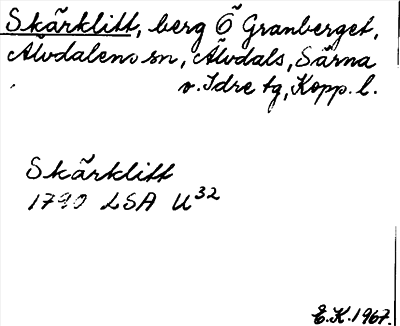 Skärklitt, berg Ö Granberget,
Älvdalens sn, Älvdals, Särna
o. Idre tg, Kopp. l.
Skärklitt
1790 LSA U32
E.K. 1967.